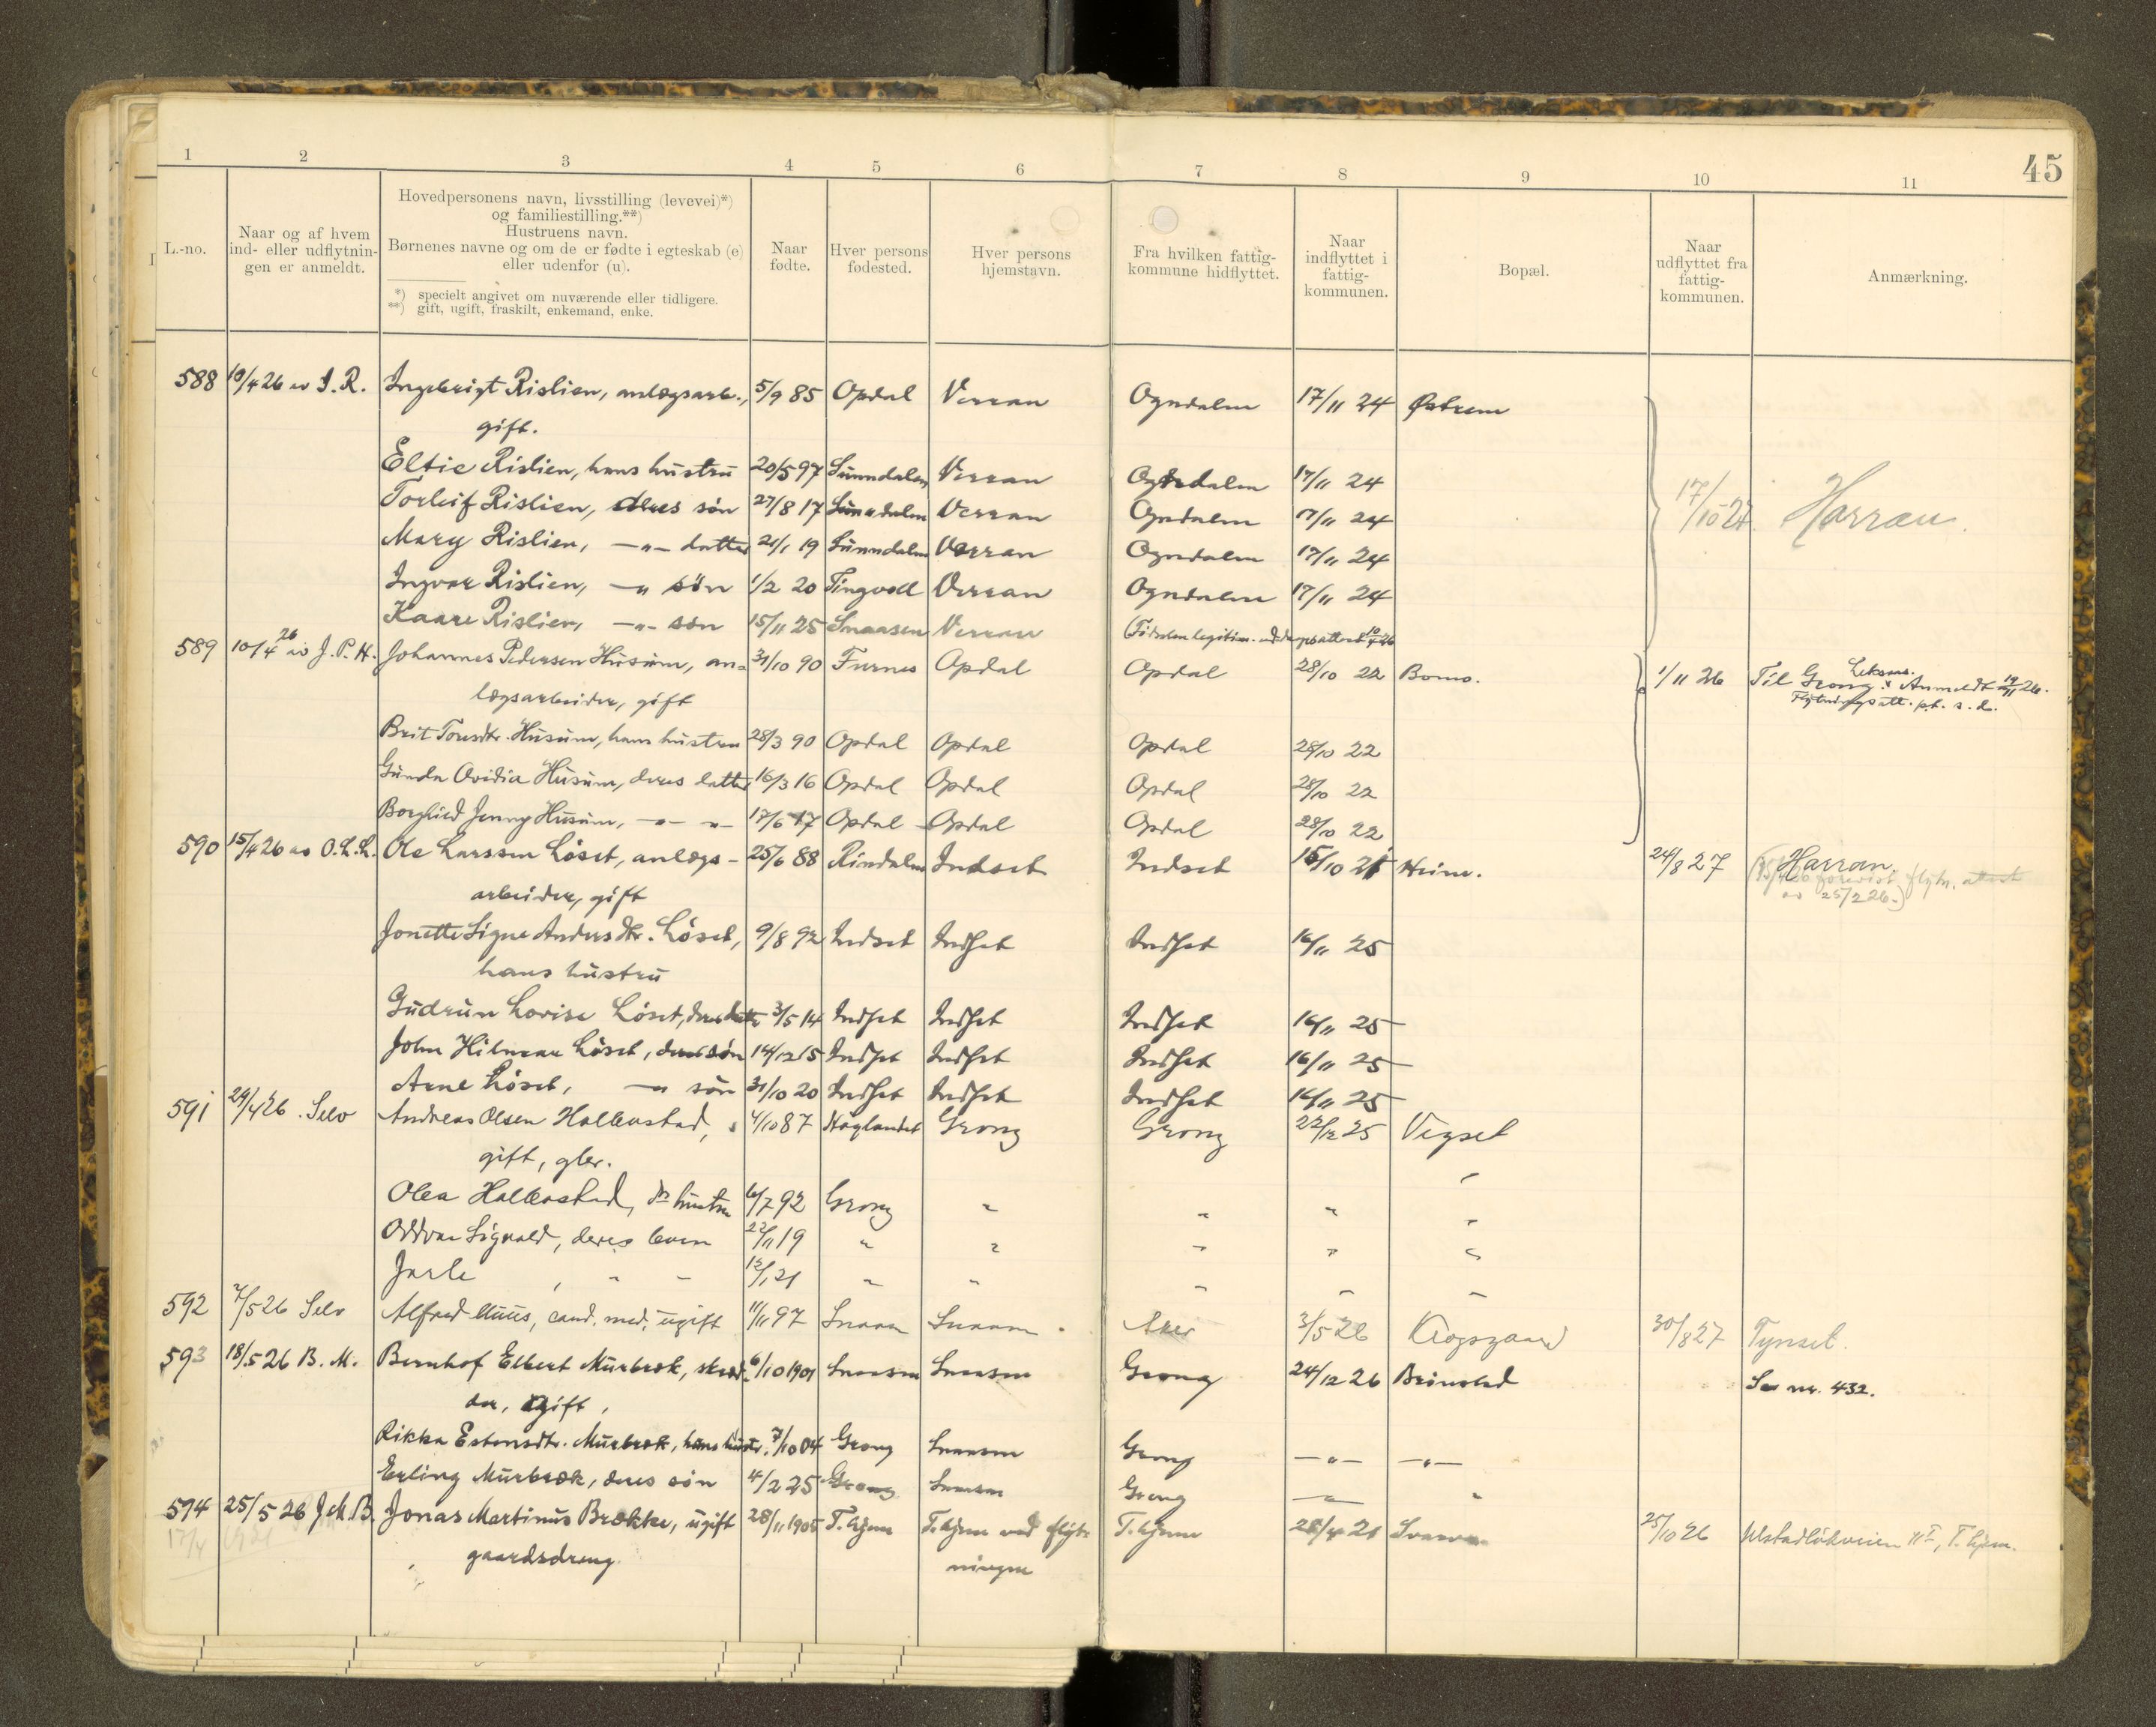 45
1 2 3 4 5 6 7 8 9 10 11
L.-no.
Naar og af hvem
ind- eller udflytnin-
gen er anmeldt.
Hovedpersonens navn, livsstilling (levevei)*)
og familiestilling.**)
Hustruens navn.
Børnenes navne og om de er fødte i egteskab (e)
eller udenfor (u).
*) specielt angivet om nuværende eller tidligere.
**) gift, ugift, fraskilt, enkemand, enke.
Naar
fødte.
Hver persons
fødested.
Hver persons
hjemstavn.
Fra hvilken fattig-
kommune hidflyttet.
Naar
indflyttet i
fattig-
kommunen.
Bopæl.
Naar
udflyttet fra
fattig-
kommunen.
Anmærkning.
588 10/4 26 av I. R. Ingebrigt Rislien, anlægsarb., 5/9 85 Opdal Verran Ogndalen 17/11 24 Østrem
gift.
Eltie Rislien, hans hustru 20/5 97 Sunndalen Verran Ogndalen 17/11 24
Torleif Rislien, deres søn 27/8 17 Sunndalen Verran Ogndalen 17/11 24 17/10 27 Harran.
Mary Rislien, —"— datter 21/1 19 Sunndalen Verran Ogndalen 17/11 24
Ingvar Rislien, —" søn 1/2 20 Tingvoll Verran Ogndalen 17/11 24
Kaare Rislien, —"— søn 15/11 25 Snaasen Verran
589 10/4 26 av J. P. H. Johannes Pedersen Husum, an- 31/10 90 Furnes Opdal Opdal 28/10 22 Bomo. 1/11 26 Til Grong. Anmeldt 26.
lægsarbeider, gift Flytningsatt. s. d.
Brit Toresdtr. Husum, hans hustru 28/3 90 Opdal Opdal Opdal 28/10 22
Gunda Ovidia Husum, deres datter 16/3 16 Opdal Opdal Opdal 28/10 22
Borghild Jenny Husum, —"— "— 17/6 17 Opdal Opdal Opdal 28/10 22
590 15/4 26 av O. L. L. Ole Larssen Løset, anlægs- 25/6 88 Rindalen Indset Indset 15/10 25 Heim. 24/8 27 Harran
arbeider, gift av 25/2 26.)
Jonette Signe Andersdtr. Løset, 9/8 92 Indset Indset Indset 16/11 25
hans hustru
Gudrun Lovise Løset, deres datter 3/5 14 Indset Indset Indset 16/11 25
John Hilmar Løset, deres søn 14/12 15 Indset Indset Indset 16/11 25
Arne Løset, —" søn 31/10 20 Indset Indset Indset 16/11 25
591 24/4 26. Selv Andreas Olsen Hallenstad, 4/10 87 Høylandet Grong Grong 22/12 25 Vegset
gift, gbr.
Olea Hallenstad, hustru 6/7 92 Grong " " " "
Oddvar Sigvald, deres barn 22/11 19 " " " " "
Jarle, " " 12/1 21 " " " " "
592 7/5 26 Selv Alfred Muus, cand. med., ugift 11/11 97 Snaasa Snaasa Aker 3/5 26 Krogsgaard 30/8 27 Tynset.
593 18/5 26 B. M. Bernhof Elbert Murbræk, skræd- 6/10 1901 Snaasen Snaasen Grong 24/12 26 Brønstad Se nr. 432.
der, gift,
Rikka Estensdtr. Murbræk, hans hustr. 7/10 04 Grong Snaasen Grong —"— —"—
Erling Murbræk, deres søn 4/2 25 Grong Snaasen Grong —"— "
594 25/5 26 J. M. B. Jonas Martinus Brekke, ugift 28/11 1905 T.hjem T.hjem ved flyt- T.hjem 25/4 21 25/10 26 T.hjem.
17/4 gaardsdreng. ningen